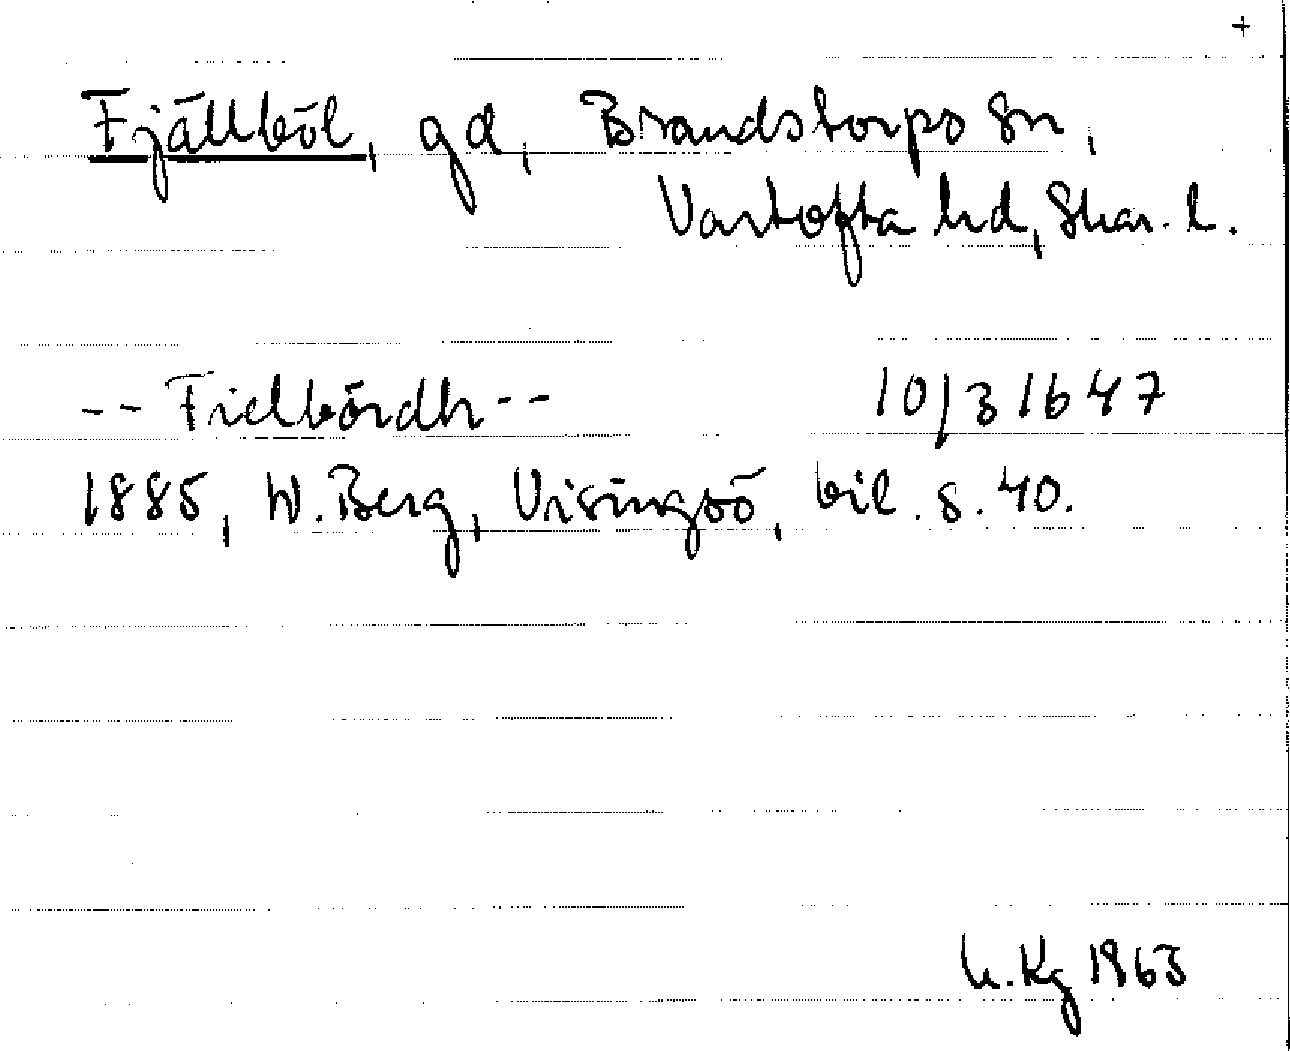 +
Fjällböl, gd, Brandstorps sn,
Vartofta hd, Skar. l.
-- Fielbördh -- 10/3 1647
1885, W. Berg, Visingsö, bil. s. 40.
K.Kg 1963